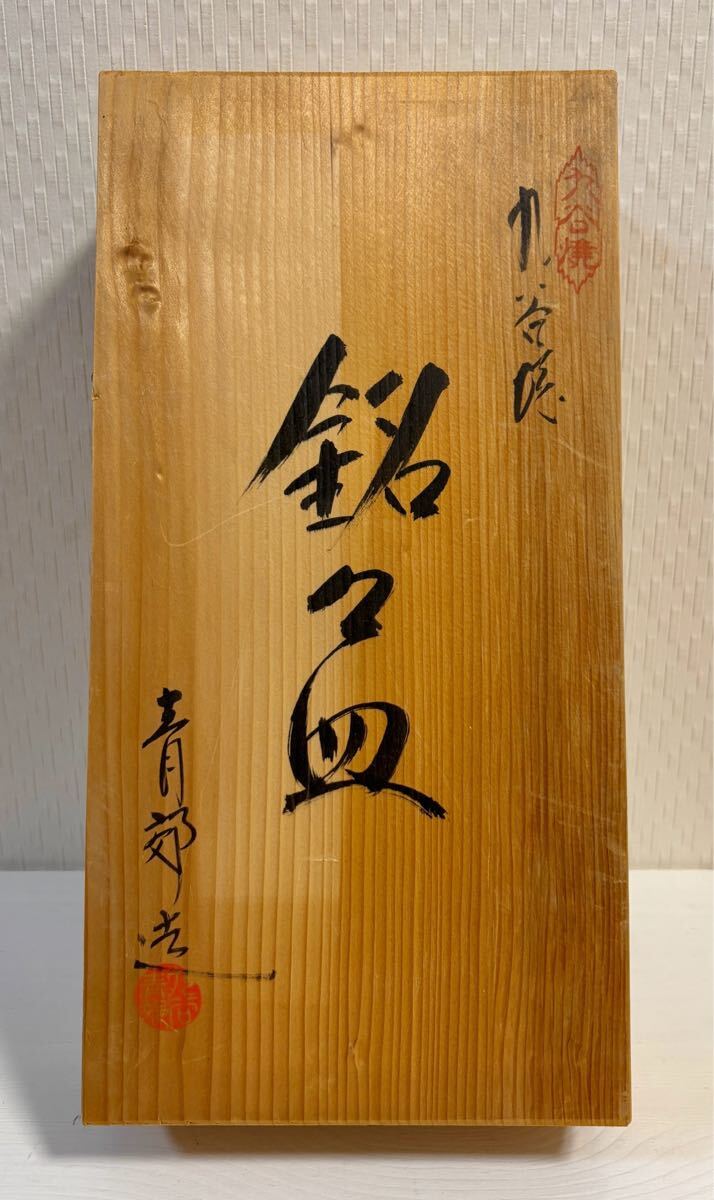 九谷焼
九谷焼
銘々皿
青郊造